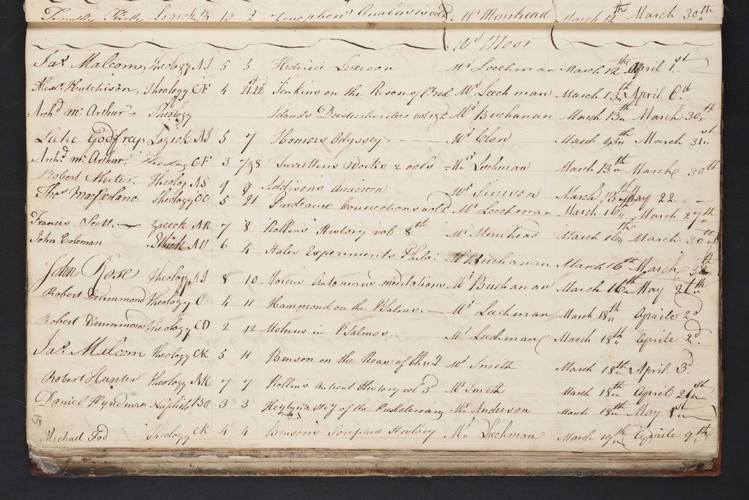 Logick B 10 2 Xenophon's Anabasis Mr Muirhead March 12th March 30th
Mr Moor
Jas. Malcom Theology AI 5 3 Hederici Lexicon Mr Leechman March 12th April 1st
Alexr. Hutchison, Theology CF 4 Jenkins on the Reason of Mr Leechman March 13th April 6th
Archd. Mc.Arthur Theology Mr Buchanan March 13th March 30th
Luke Godfrey Logick AI 5 7 Homers Odyssey Mr Clow March 31st
Archd. Mc.Arthur Theology CF 3 7 & 8 Works 2 vols Mr Leechman March 13th March 30th
Robert Hunter Theology AS 9 9 Addisons Mr Simson March 13th May 22
Thos. Macfarlane Theology CC 5 21 Prideaux Connections vol Mr Leechman March 16th March 27th
Francis Scott Greeck AR 7 8 Rollins History vol 8th Mr Muirhead March 16th March 30th
John Coleman Ethick AU 6 4 Hales Experiments Philo: Mr Buchanan March 16th March
John Rose Theology AI 8 10 Marcus Antoninus meditations Mr Buchanan March 16th May
Robert Drummond Theology C 4 11 Hammond on the Psalms Mr Lachman March 18th Aprile 2d
Robert Drummond Theology CD 2 12 in Psalmos Mr Lachman March 18th Aprile 2d
Jas. Malcom Theology CK 5 11 Benson on the Reas: of Mr Smith March 18th April 3d
Robert Hunter Theology AR 7 7 Rollins Antient History vol 3d Mr Smith March 18th April
Daniel Hyndman BO 3 3 Heylyns Hisy of the Presbiterians Mr Anderson March 18th May 1st
Michael Tod Theology CK 4 4 Bensons History Mr Lachman March 19th Aprile 9th